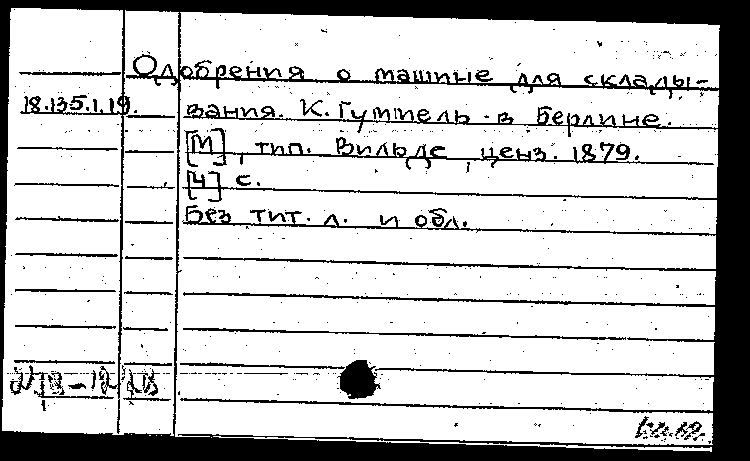 Одобрения о машине для склады-
18.135.1.19. вания. К. Гуммель в Берлине.
[М], тип. Вильде, ценз. 1879.
[4] с.
Без тит. л. и обл.